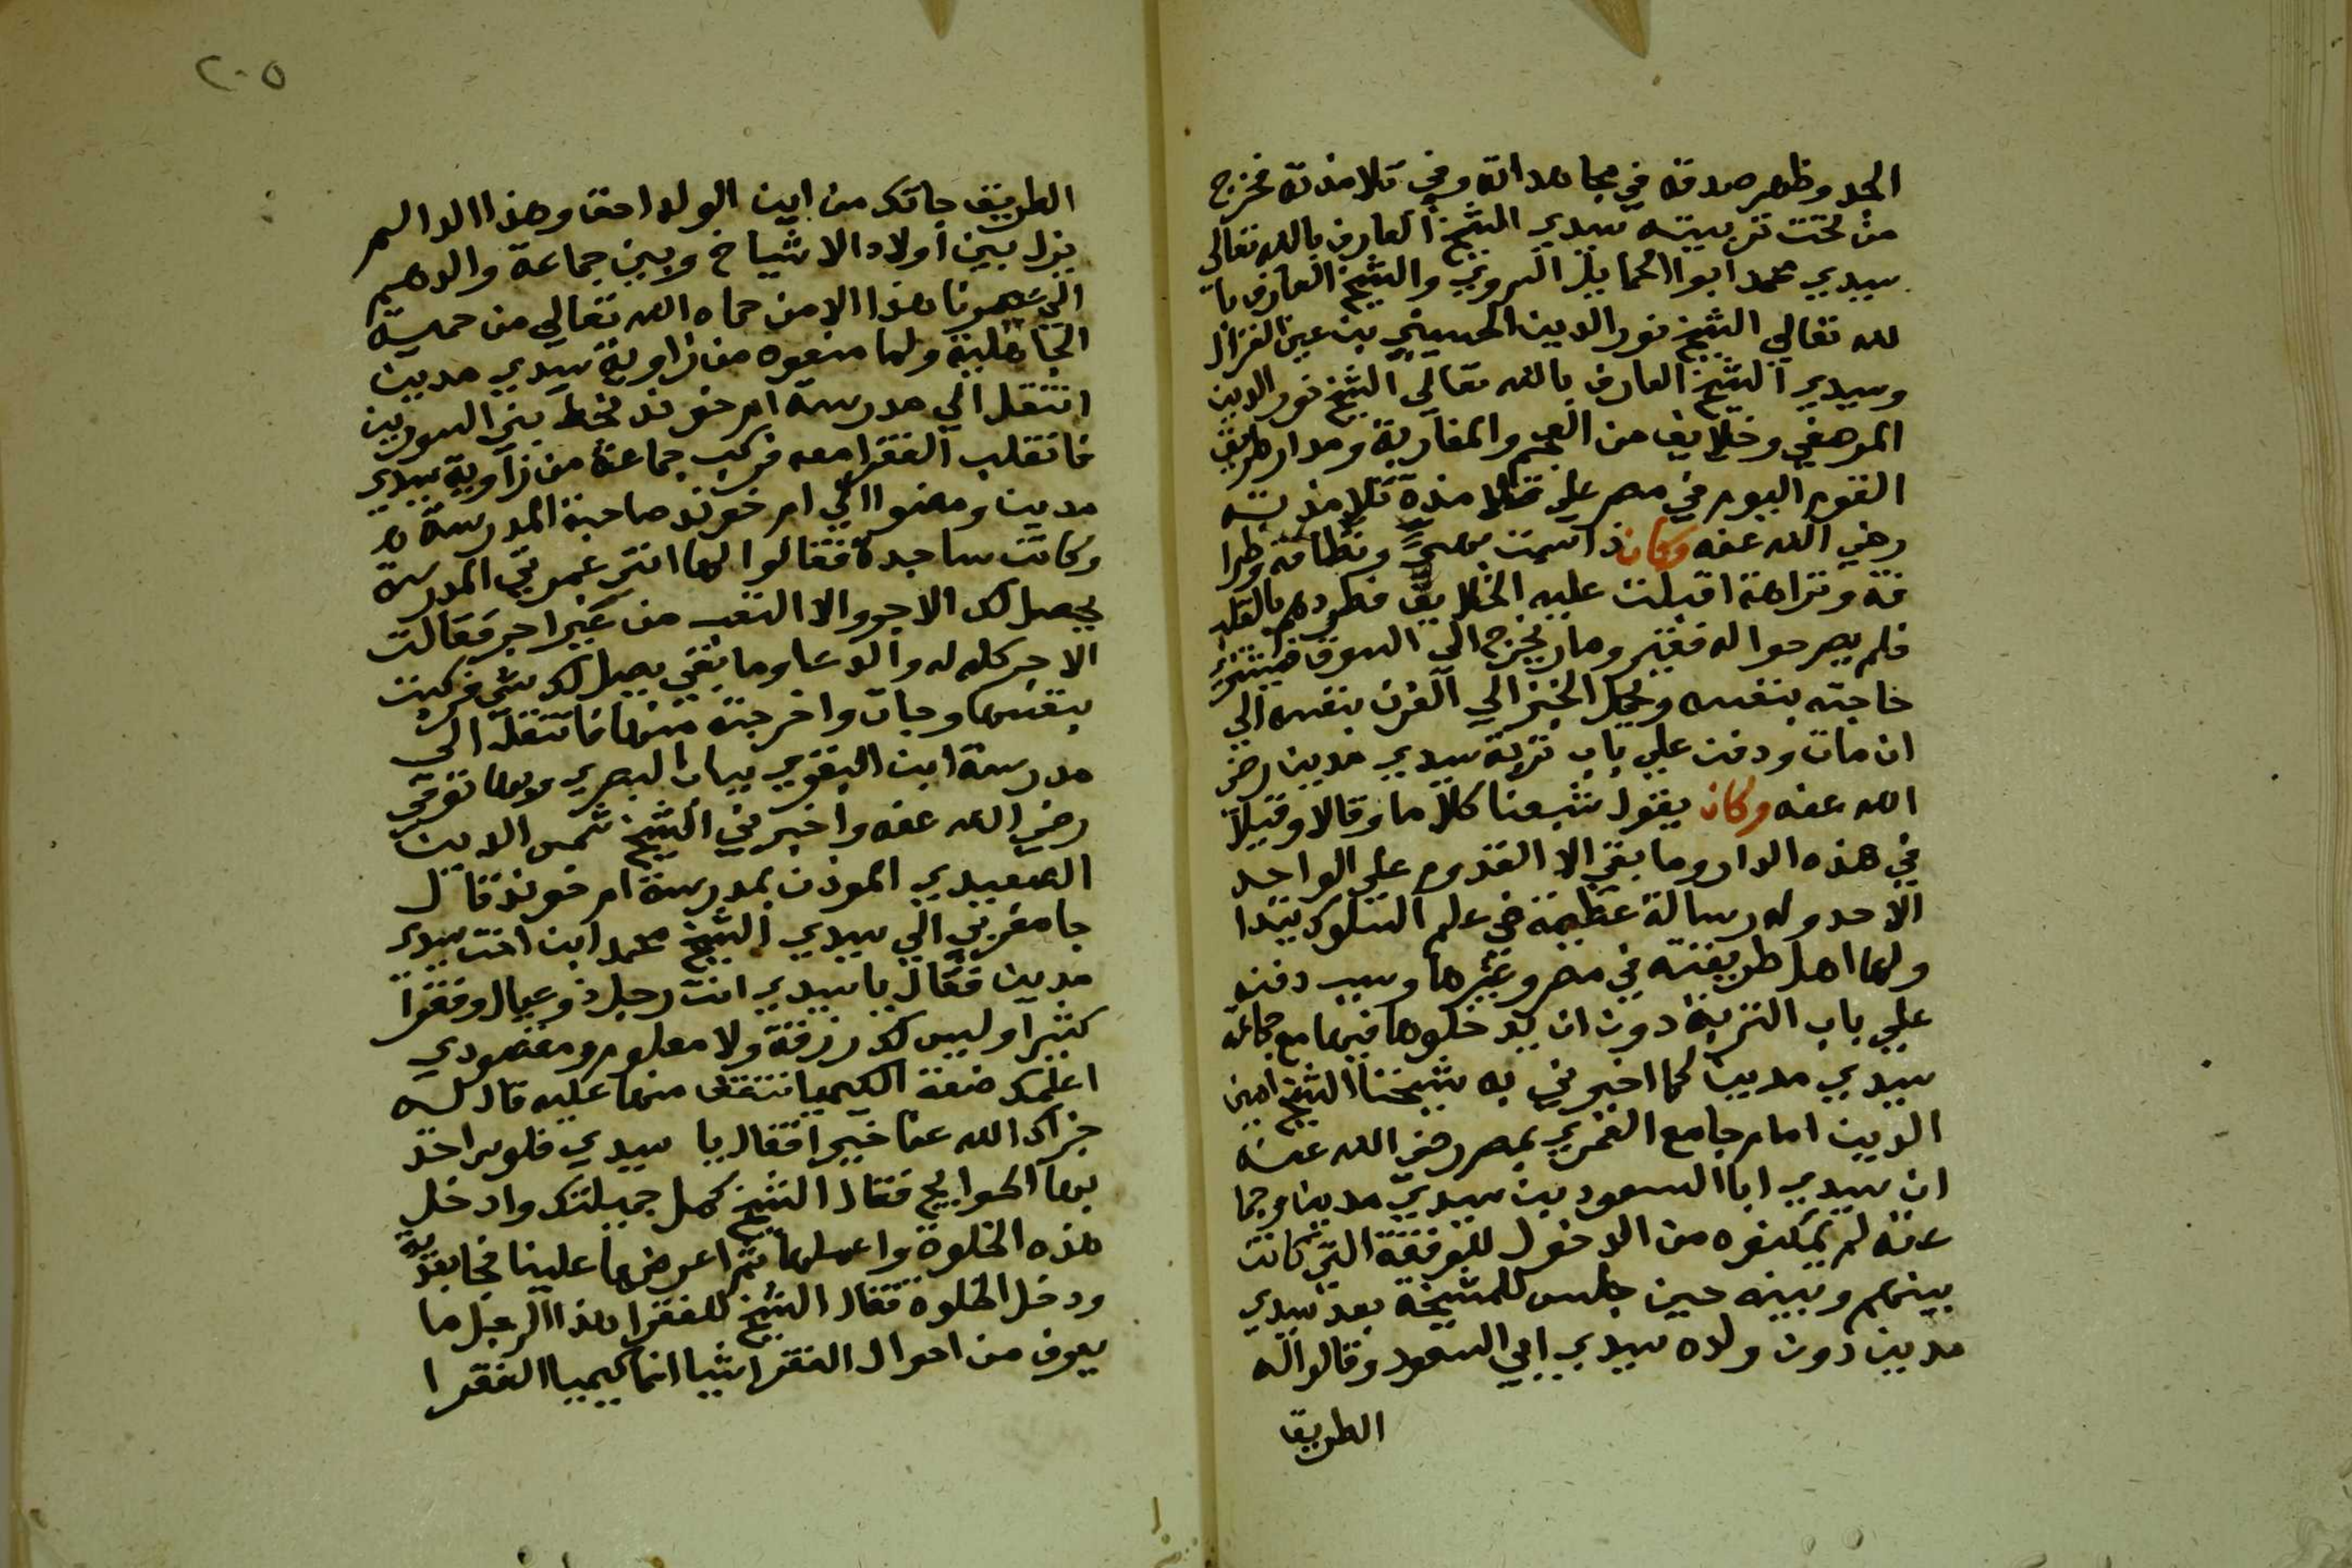 الجد وظهر صدقه في مجاهداته وفي تلامذته فخرج
من تحت تربيته سيدي الشيخ العارف بالله تعالي
سيدي محمد ابوا الحمايل السروي والشيخ العارف با
لله تعالي الشيخ نور الدين الحسيني بن عين الغزال
وسيدي الشيخ العارف بالله تعالي الشيخ نور الدين
المرصفي وخلايف من العجم والمغاربة ومدار طريق
القوم اليوم في مصر علي تلامذة تلامذته
رضي الله عنه وكان ذا سمت بهي ونظافة وظرا
فة ونزاهة اقبلت عليه الخلايق فطردهم بالقلب
فلم يصرحوا له فقير وصار يخرج الي السوق فيشتري
حاجته بنفسه ويحمل الخبز الي الفرن بنفسه الي
ان مات ودفن علي باب تربة سيدي مدين رضي
الله عنه وكان يقول شبعنا كلاما وقالا وقيلا
في هذه الدار وما بقي الا القدوم علي الواحد
الاحد وله رسالة عظيمة في علم السلوك يتدا
ولها اهل طريقته في مصر وغيرها وسبب دفنه
علي باب التربة دون ان يدخلوها فيها مع جماعة
سيدي مدين كما اخبرني به شيخنا الشيخ امين
الدين امام جامع الغمري بمصر رضي الله عنه
ان سيدي ابا السعود بن سيدي مدين وجما
عته لم يمكنوه من الدخول للوقفة التي كانت
بينهم وبينه حين جلس للمشيخة بعد سيدي
مدين دون ولده سيدي ابي السعود وقالوا له
الطريق
٢٠٥
الطريق جاتك من اين الولد احق وهذا الداالم
يزل بين اولاد الاشياخ وبين جماعة والدهم
الي عصرنا هذا الا من حماه الله تعالي من حمية
الجاهلية ولما منعوه من زاوية سيدي مدين
انتقل الي مدرسة ام خوند بخط بين السورين
فانقلب الفقرا معه فركب جماعة من زاوية سيدي
مدين ومضوا الي ام خوند صاحبة المدرسة
وكانت ساجدة فقالوا لها انتي عمرتي المدرسة
يحصل لك الاجر والا التعب من غير اجر فقالت
الاجر كله له والدعا وما بقي يصل لك شي فركبت
بنفسها وجات واخرجته منها فانتقل الي
مدرسة ابن البقري بباب البصري وبها توفي
رضي الله عنه واخبرني الشيخ شمس الدين
الصعيدي الموذن بمدرسة ام خوند قال
جا مغربي الي سيدي الشيخ محمد ابن اخت سيدي
مدين فقال يا سيدي انت رجل ذو عيال وفقرا
كثيرا وليس لك رزقة ولا معلوم ومقصودي
اعلمك صنعة الكيميا تنفق منها عليه قال له
جزاك الله عنا خيرا فقال يا سيدي فلوس اخذ
بها الحوايج فقال الشيخ كمل جميلتك وادخل
هذه الخلوة واعملها ثم اعرضها علينا فجا بعدية
ودخل الخلوة فقال الشيخ للفقرا هذا الرجل ما
يعرف من احوال الفقرا شيا انما كيميا الفقرا